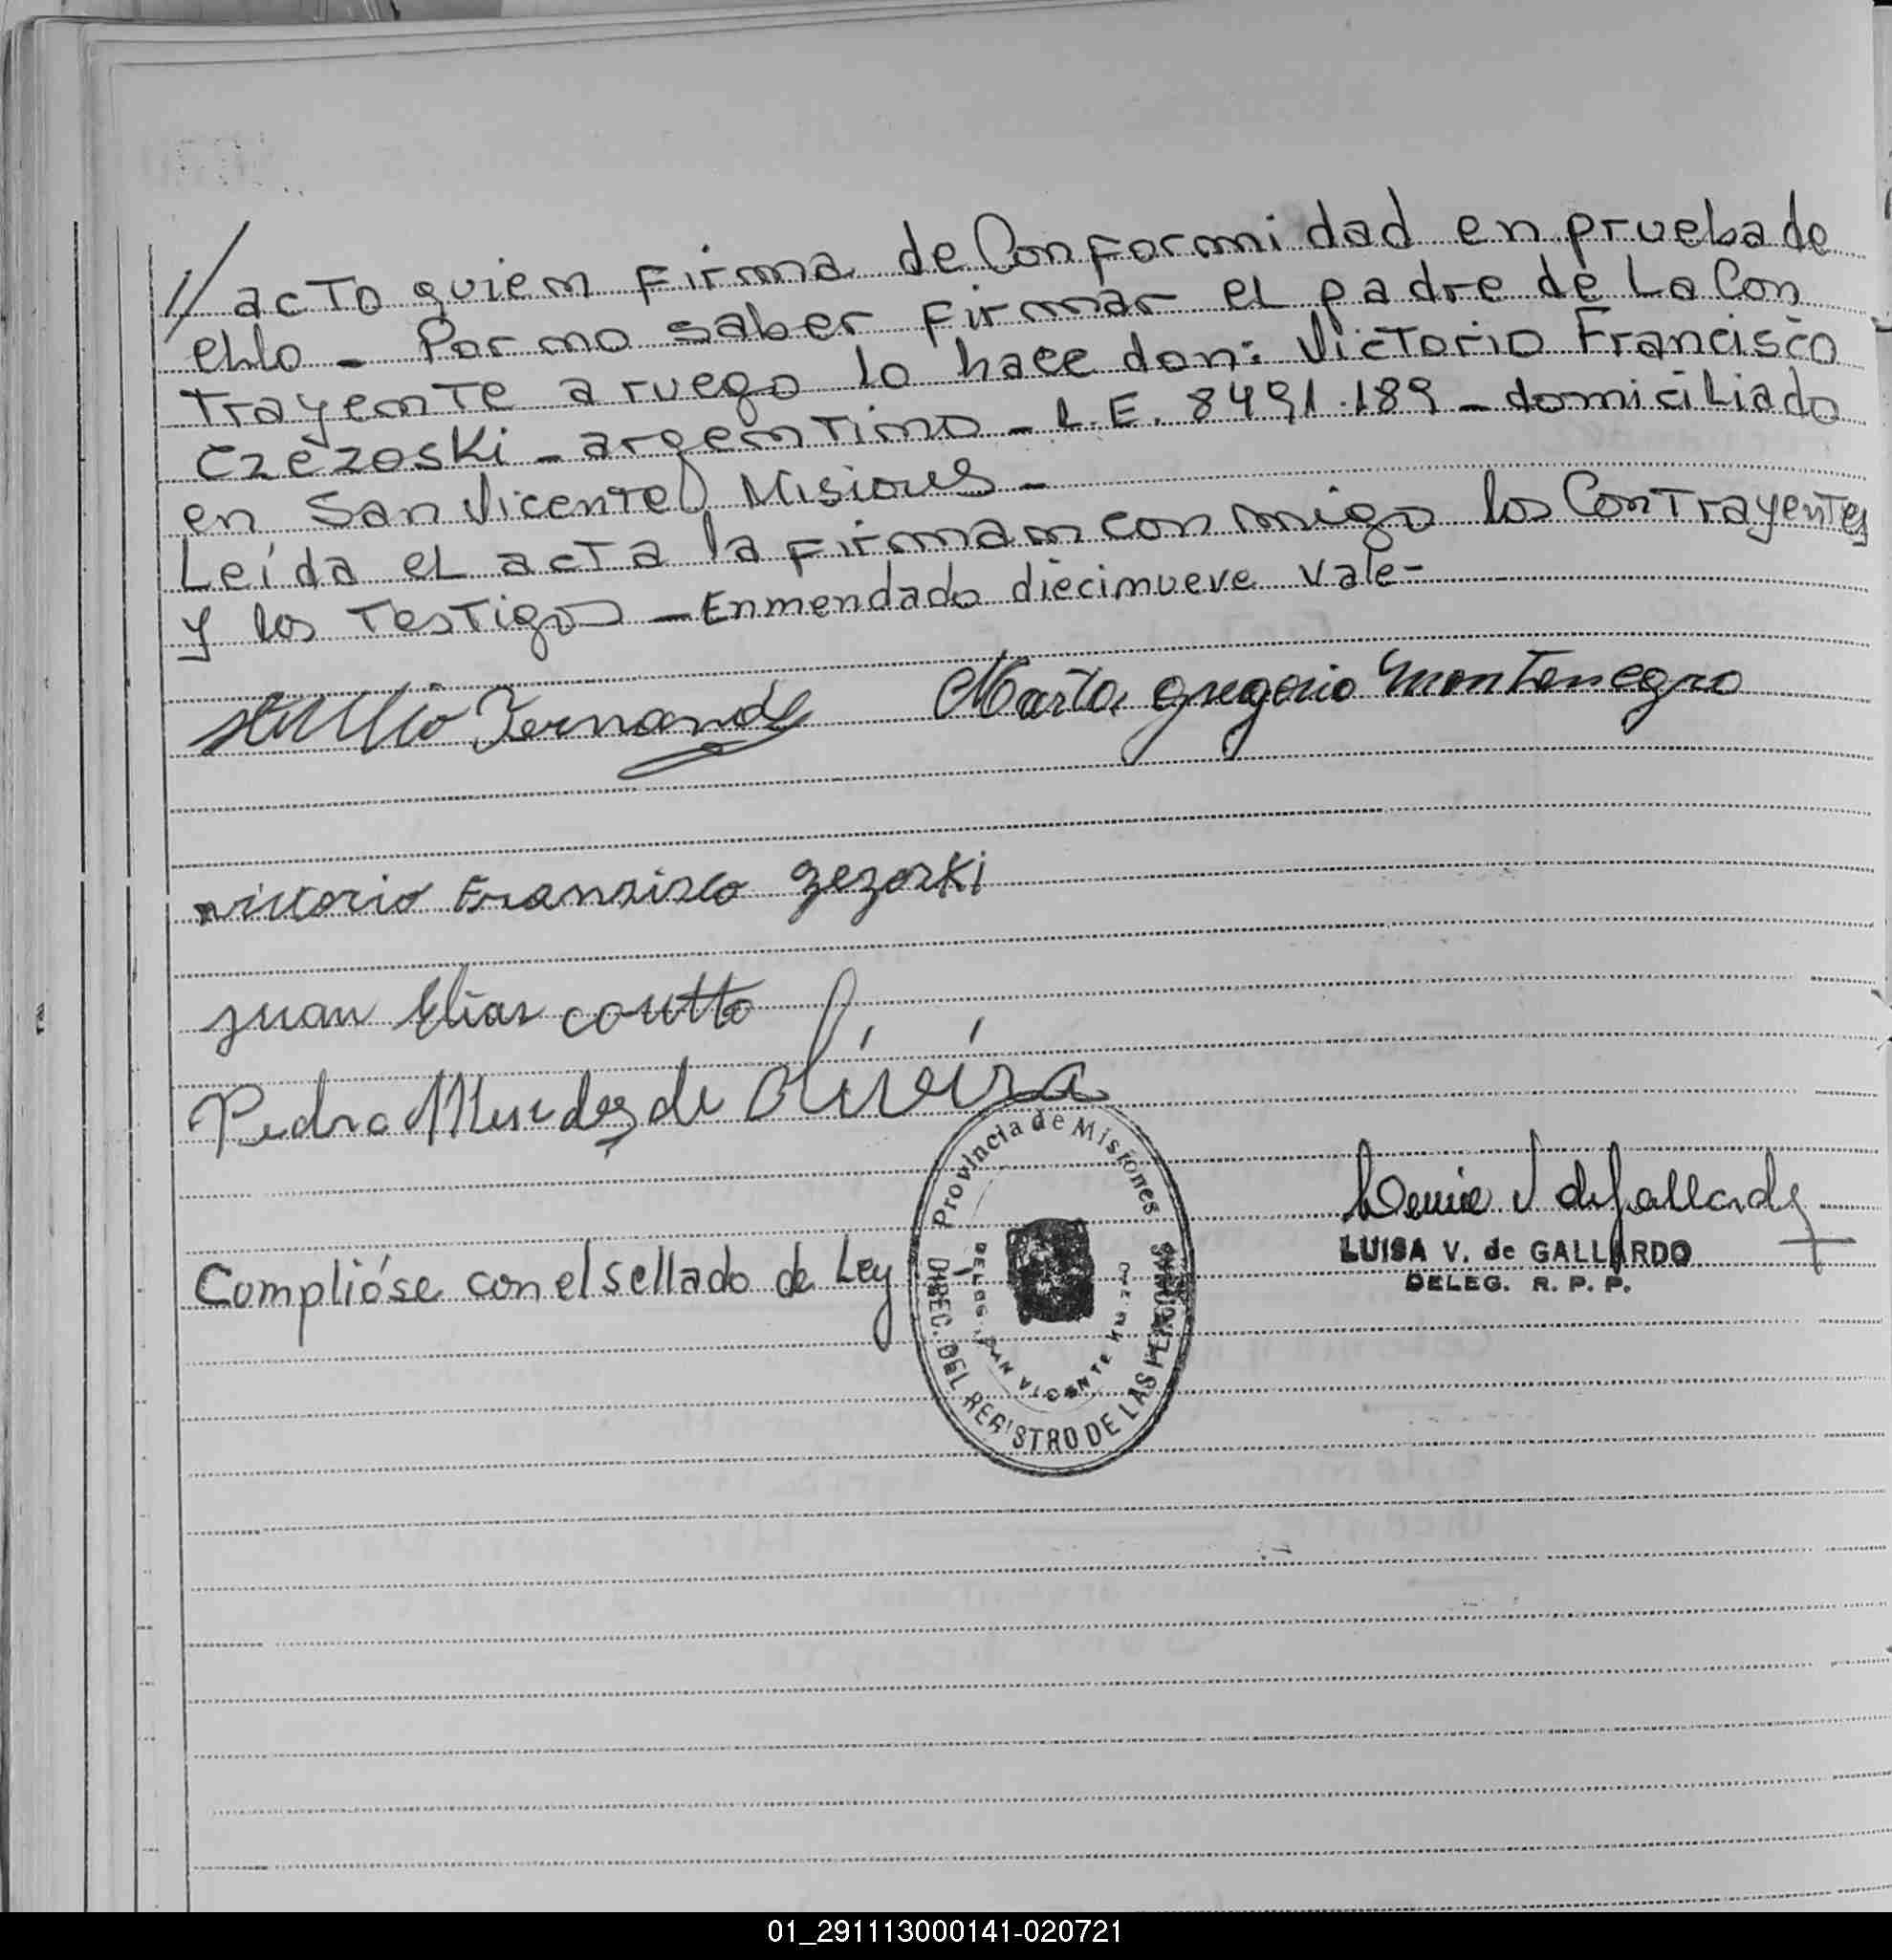 // acto quien firma de Conformidad en prueba de
ello - Por no saber firmar el padre de La Con
trayente a ruego lo hace don: Victorio Francisco
Czezoski - argentino - L.E. 8491.189 - domiciliado
en San Vicente Misiones -
Leída el acta la firman conmigo los Contrayentes
y los Testigos - Enmendado diecinueve vale -
Fernandez Marta gregorio Montenegro
victorio Fransisco zezoski
juan Elias coutto
Pedro Mendez de Oliveira
V de Gallardo
LUISA V. de GALLARDO
DELEG. R. P. P.
Complióse con el sellado de Ley
Provincia de Misiones
DIREC. DEL REGISTRO DE LAS PERSONAS
DELEG. SAN VICENTE
01_291113000141-020721